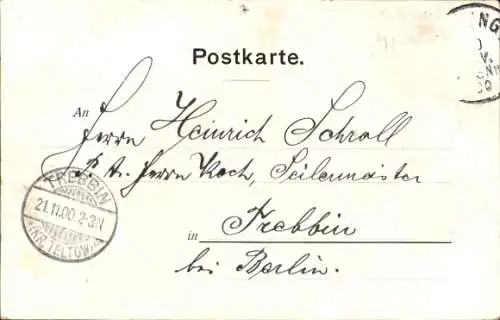 Postkarte.
An Herrn Heinrich Schroll
p. A. Herrn Koch, Seilermeister
in Trebbin
bei Berlin.
TREBBIN
21.11.00. 2-3N
*(KR. TELTOW)*
NG